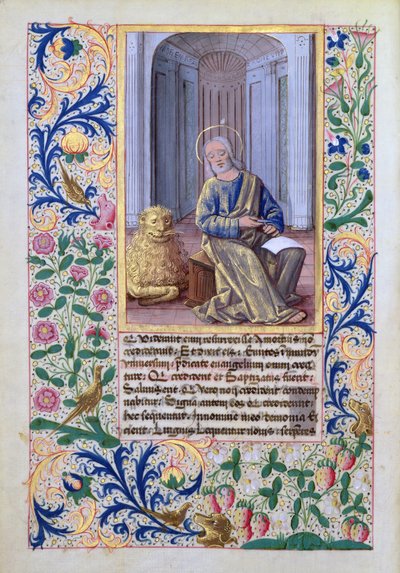 Q Viderant eum resurrexisse A mortuis no
crediderunt: Et Dixit eis: Euntes in mundu
vniuersum: Predicate euangelium omni crea
ture: Qui crediderit et Baptizatus fuerit:
Saluus erit: Qui vero non crediderit condemp
nabitur: Signa autem eos qui crediderint
hec sequentur: In nomine meo demonia Ei
cient: Linguis Loquentur nouis: serpentes